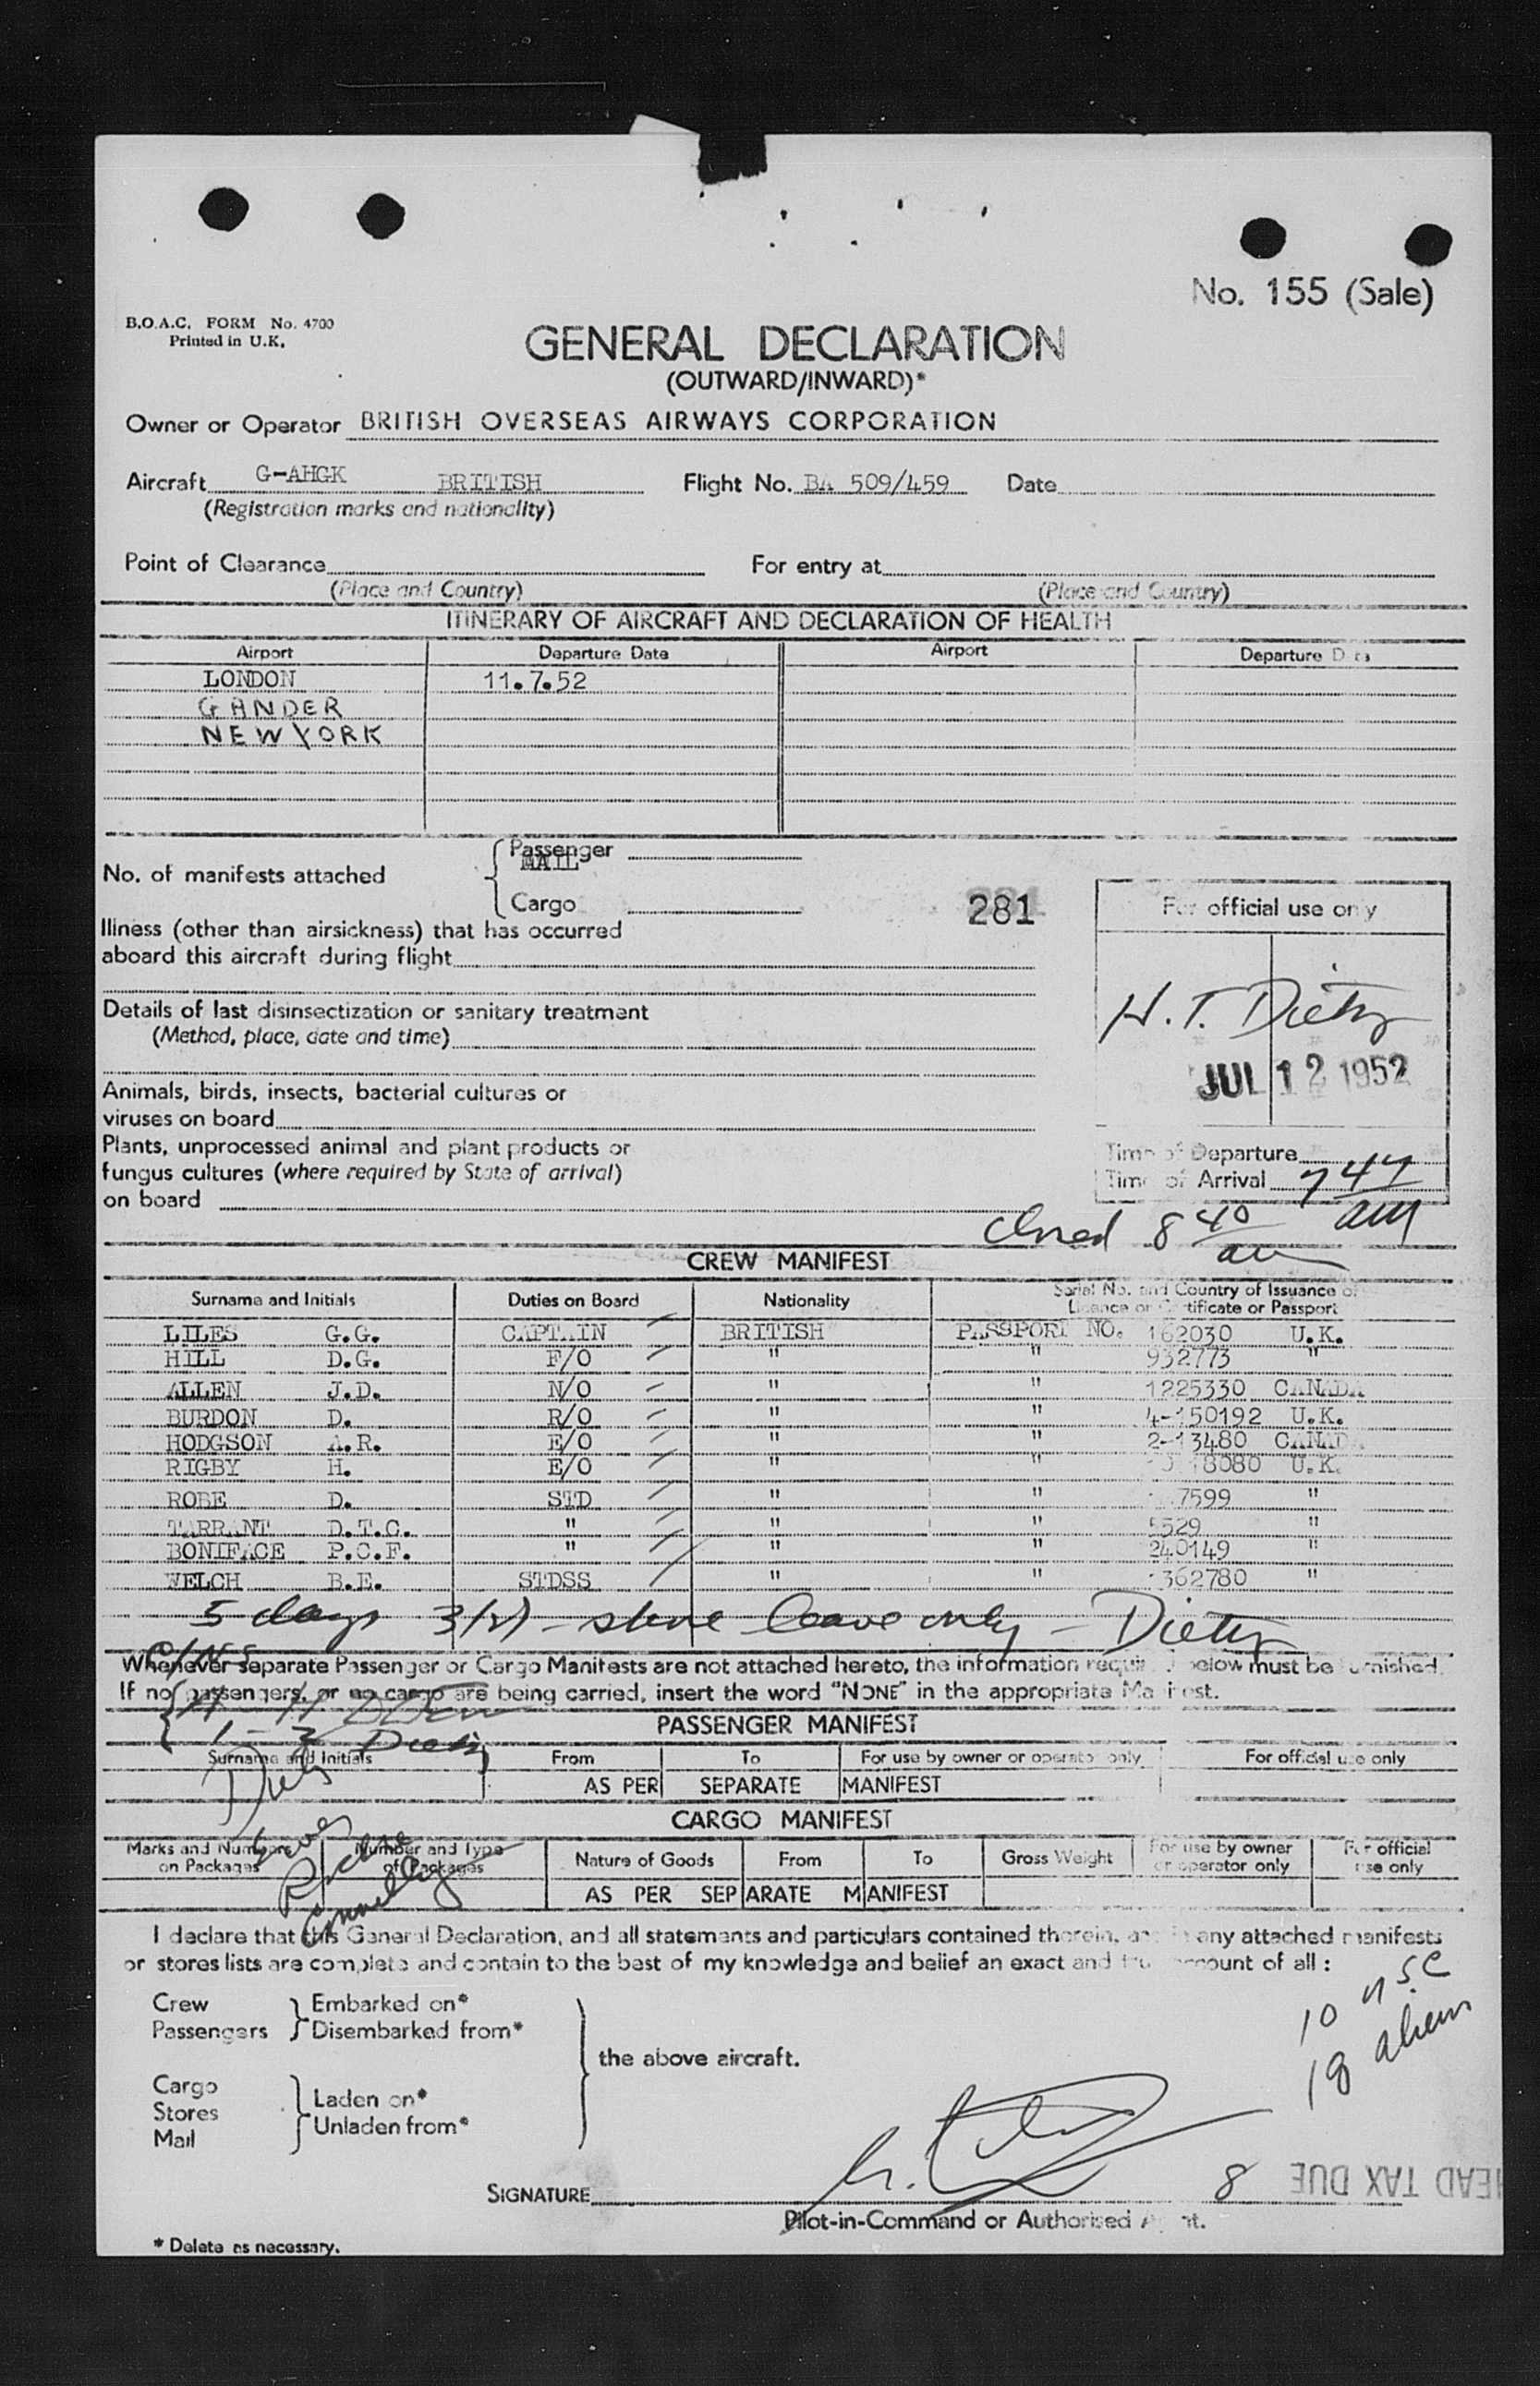 No. 155 (Sale)
B.O.A.C. FORM No. 4700
Printed in U.K.
GENERAL DECLARATION
(OUTWARD/INWARD)*
Owner or Operator BRITISH OVERSEAS AIRWAYS CORPORATION
Aircraft G-AHGK BRITISH Flight No. BA 509/459 Date
(Registration marks and nationality)
Point of Clearance For entry at
(Place and Country) (Place and Country)
ITINERARY OF AIRCRAFT AND DECLARATION OF HEALTH
Airport Departure Date Airport Departure
LONDON 11.7.52
GANDER
NEW YORK
Passenger
MAIL
No. of manifests attached
Cargo
281
For official use only
Illness (other than airsickness) that has occurred
aboard this aircraft during flight
H. T. Dietz
Details of last disinsectization or sanitary treatment
(Method, place, date and time)
JUL 12 1952
Animals, birds, insects, bacterial cultures or
viruses on board
Plants, unprocessed animal and plant products or
fungus cultures (where required by State of arrival)
on board
Time of Departure
Time of Arrival 7 47 am
closed 8 40 am
CREW MANIFEST
Surname and Initials Duties on Board Nationality Serial No. and Country of Issuance of
Licence or Certificate or Passport
LILES G.G. CAPTAIN BRITISH PASSPORT NO. 162030 U.K.
HILL D.G. F/O " " 932773 "
ALLEN J.D. N/O " " 1225330 CANADA
BURDON D. R/O " " 4-150192 U.K.
HODGSON A.R. E/O " " 2-13480 CANADA
RIGBY H. E/O " " U.K.
ROBE D. STD " " "
TARRANT D.T.C. " " " 5529 "
BONIFACE P.C.F. " " " 240149 "
WELCH B.E. STDSS " " "
5 days 3(5) - shore leave only - Dietz
Whenever separate Passenger or Cargo Manifests are not attached hereto, the information required below must be furnished.
If no passengers, or no cargo are being carried, insert the word "NONE" in the appropriate Manifest.
Dietz
PASSENGER MANIFEST
Surname and Initials From To For use by owner or operator only For official use only
Dietz
AS PER SEPARATE MANIFEST
CARGO MANIFEST
Marks and Numbers on Packages Number and Type of Packages Nature of Goods From To Gross Weight For use by owner or operator only For official use only
AS PER SEPARATE MANIFEST
Connelly
I declare that this General Declaration, and all statements and particulars contained therein, and in any attached manifests
or stores lists are complete and contain to the best of my knowledge and belief an exact and true account of all :
10 USC
18 aliens
Crew
Passengers
Embarked on*
Disembarked from*
the above aircraft.
Cargo
Stores
Mail
Laden on*
Unladen from*
8 HEAD TAX DUE
SIGNATURE
Pilot-in-Command or Authorised Agent.
* Delete as necessary.